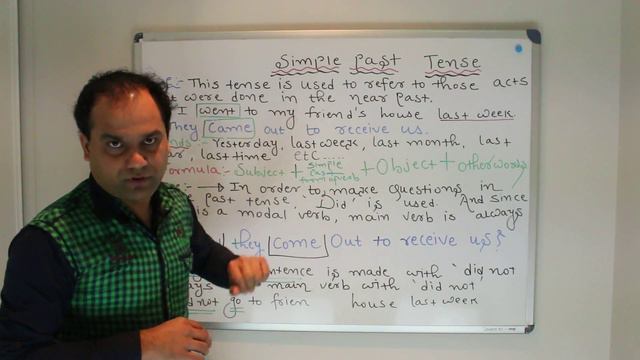 Simple Past Tense
This tense is used to refer to those acts
were done in the near past.
I went to my friend's house last week.
They came out to receive us.
Yesterday, last week, last month, last
last time etc.
Formula:- Subject + Simple past form of verb + Object + Other words
In order to make questions in
past tense, 'Did' is used. And since
is a modal verb, main verb is always
they come out to receive us?
sentence is made with 'did not
main verb with 'did not'
not go to frien house last week